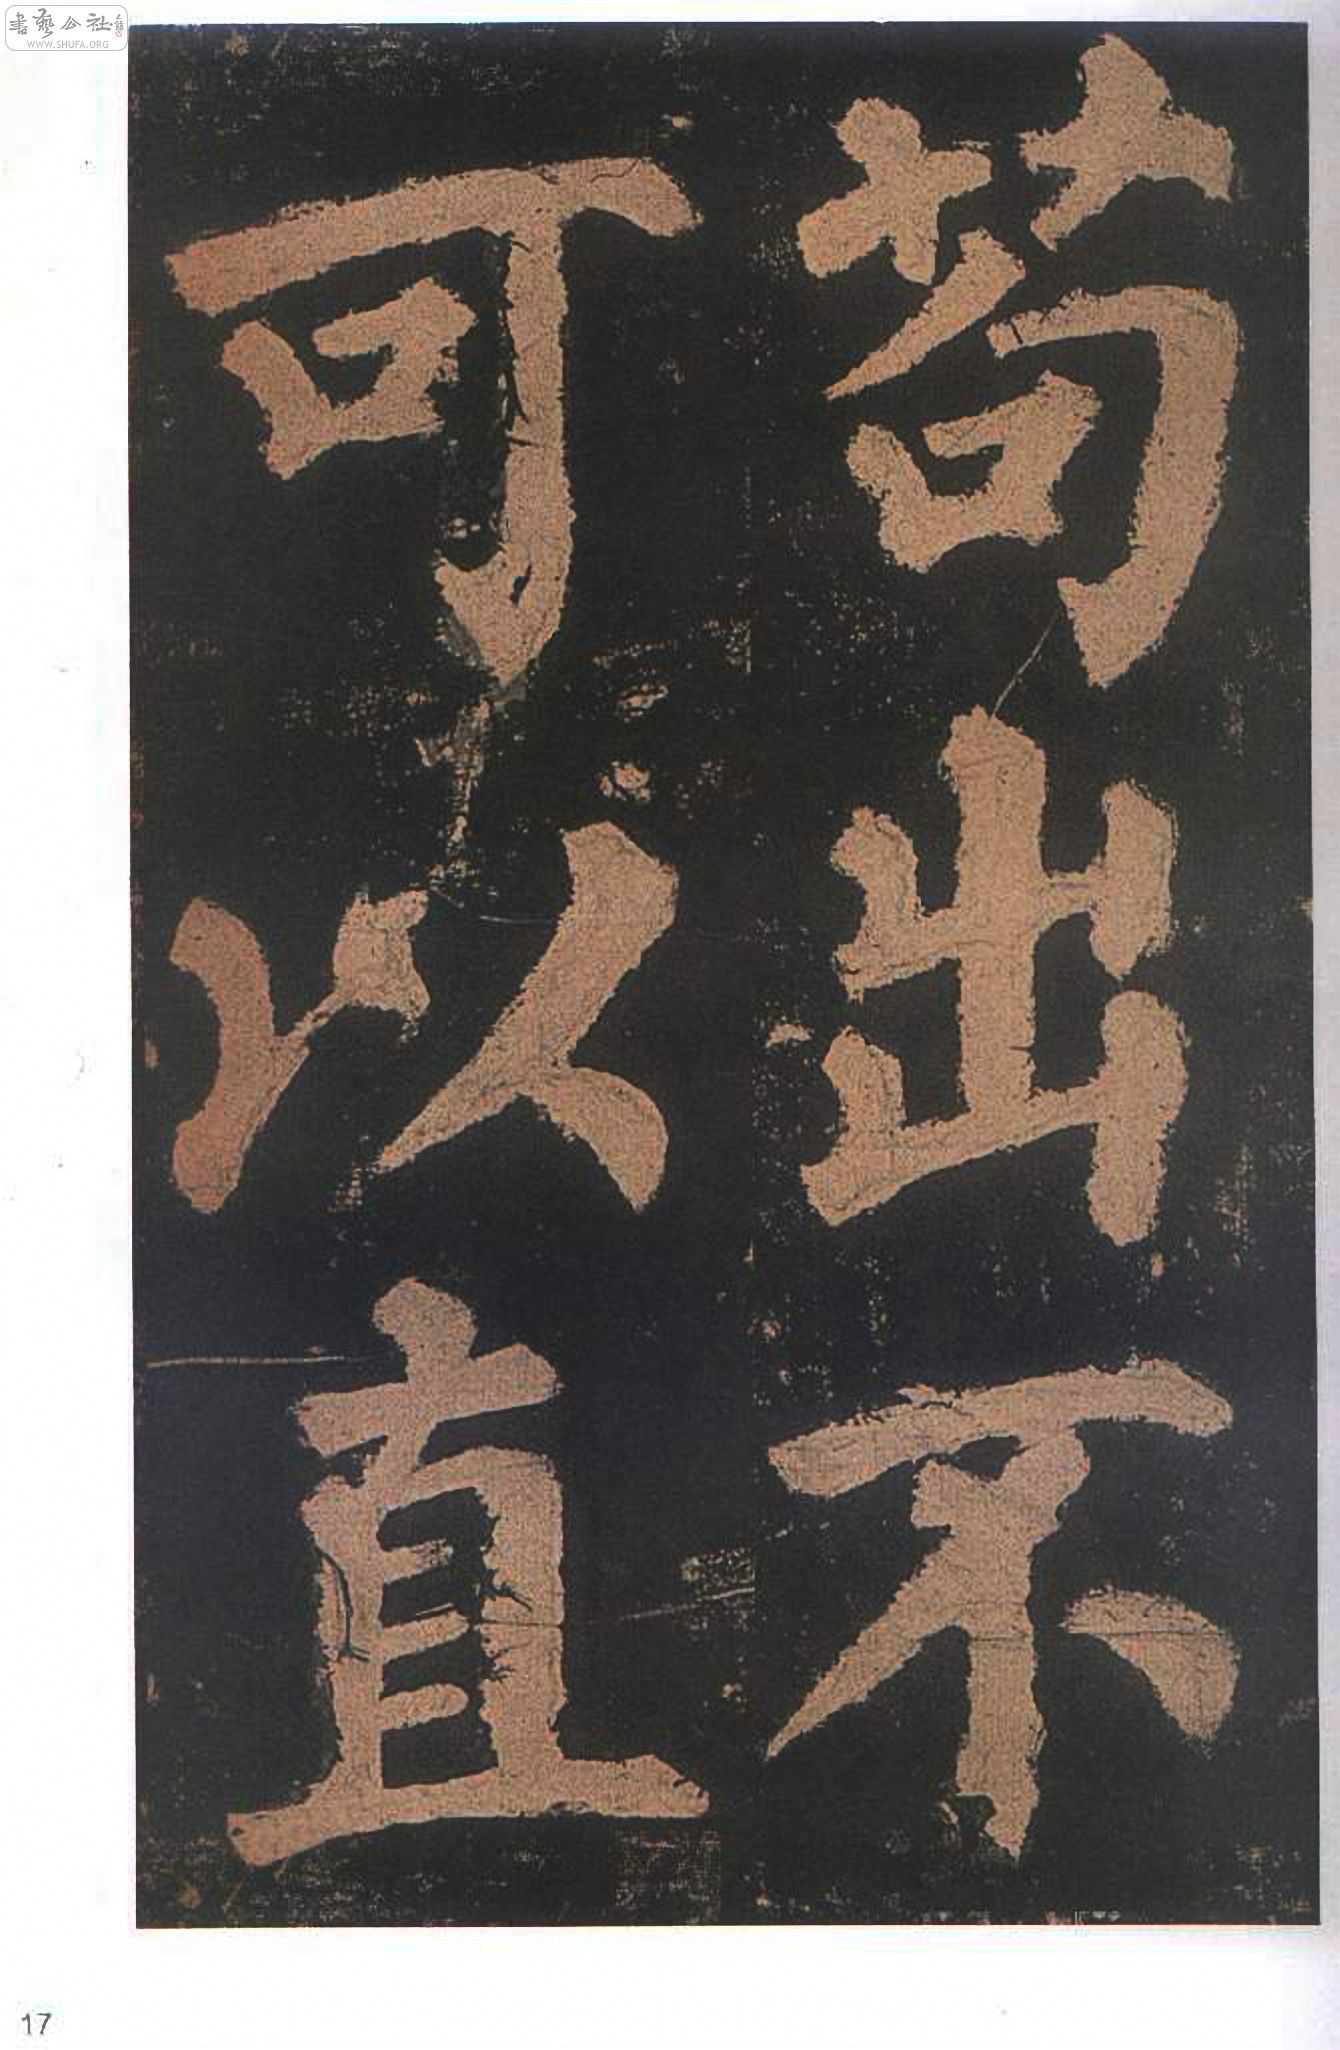 書藝公社
WWW.SHUFA.ORG
苟出不
可以直
17